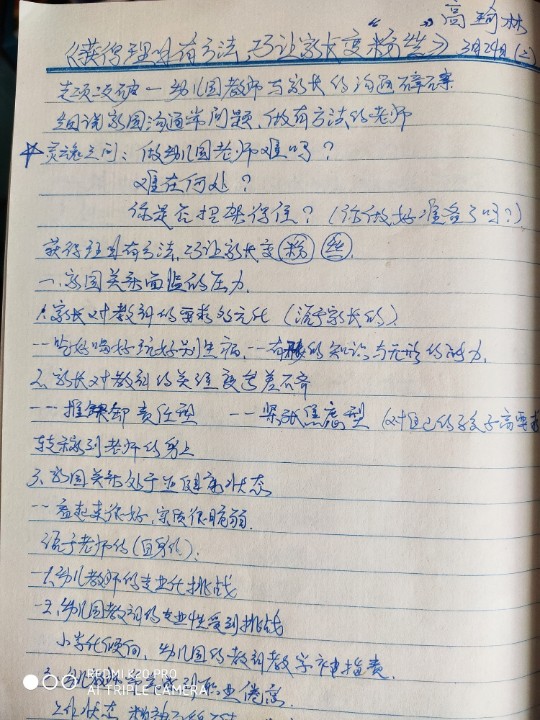 高瑜林
《获得理解有方法,巧让家长变“粉丝”》 3月29日(二)
专项突破一幼儿园教师与家长的沟通碍
细谈家园沟通常问题,做有方法的老师
☆灵魂之问:做幼儿园老师难吗?
难在何处?
你是否把架得住?(你做好准备了吗?)
获得理解有方法,巧让家长变粉丝
一、家园关系面临的压力
1、家长对教师的要求多元化(源于家长的)
--吃好喝好玩好别生病,--有的知识与无形的能力.
2、家长对教师的关注度参差不齐
--推卸责任型 --紧张焦虑型(对自己的孩子高要求
转嫁到老师的身上
3、家园关系处于亚健康状态
--看起来很好,实质很脆弱.
源于老师的(自身化):
--1、幼儿教师的专业化挑战
--2、幼儿园教师的专业性受到挑战
小学化倾向,幼儿园的教师教学审指责.
3、幼儿教师职业倦怠
工作状态
REDMI K20 PRO
AI TRIPLE CAMERA